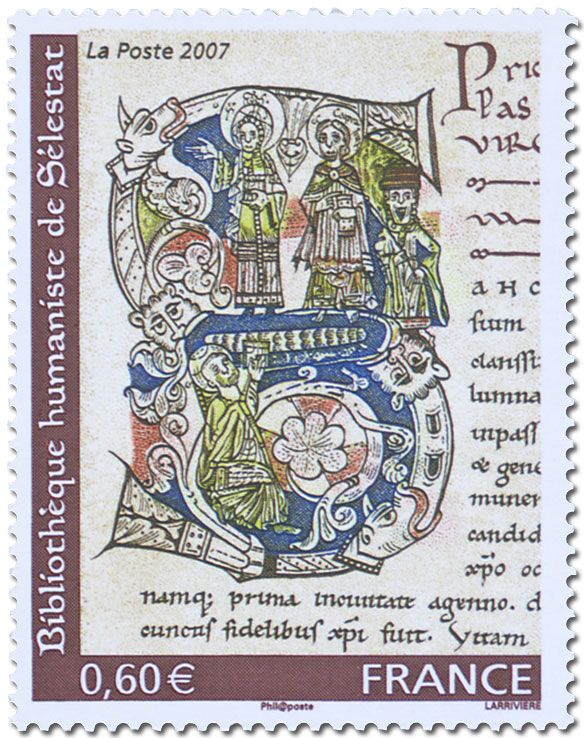 La Poste 2007
Bibliothèque humaniste de Sélestat
Pric
las
VIRG
AHC
fuim
clarissi
lumna
inpass
& gene
muner
candid
xpo oc
namq; prima inciuitate agenno. d
cunctis fidelibus xpi fuit. Vitam
0,60 €
FRANCE
Phil@poste
LARRIVIÈRE